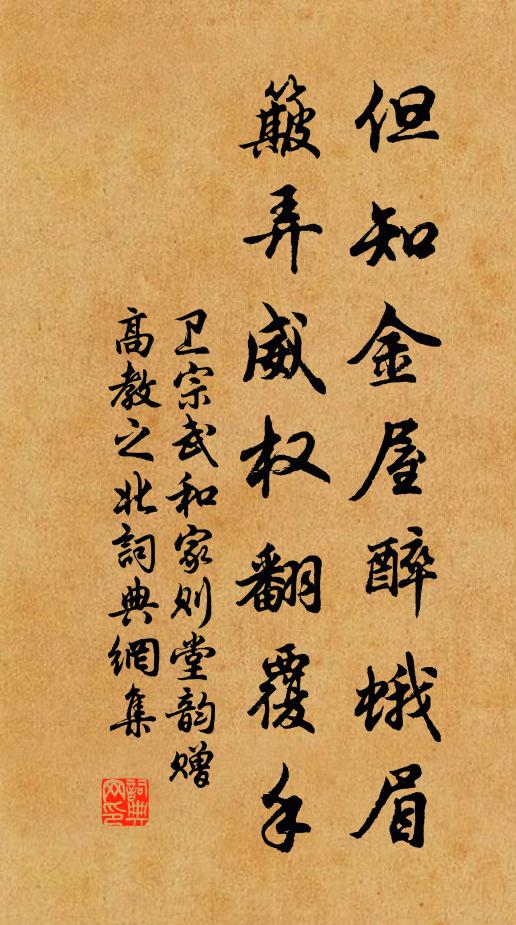 但知金屋醉蛾眉
簸弄威权翻覆手
卫宗武和家则堂韵赠
高教之北詞典網集
詞典网印